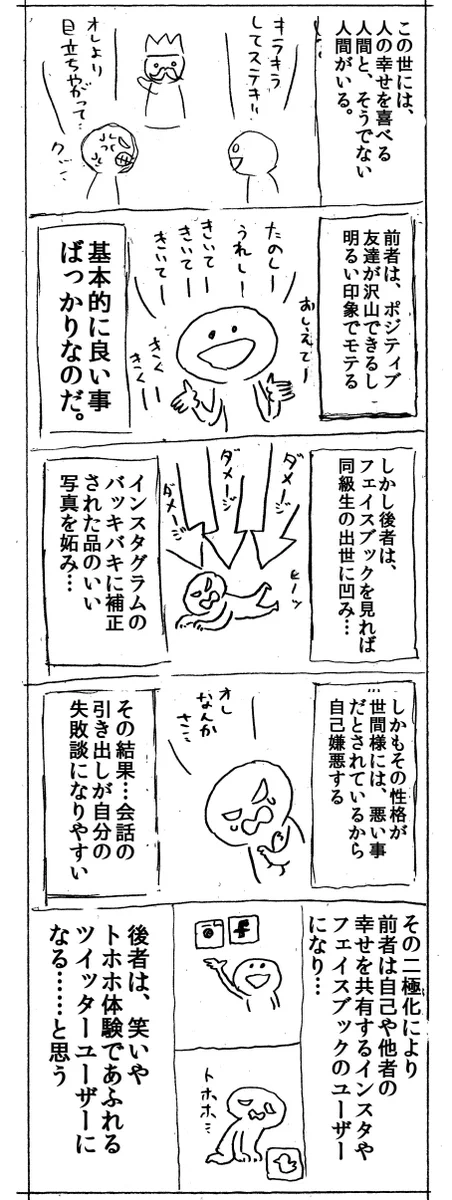 この世には、
人の幸せを喜べる
人間と、そうでない
人間がいる。
キラキラ
してステキ!!
オレより
目立ちやがって…
クソ…
前者は、ポジティブ
友達が沢山できるし
明るい印象でモテる
おしえてー
たのしー
うれしー
きいてー
きいてー
きいてー
きくー
きくー
基本的に良い事
ばっかりなのだ。
しかし後者は、
フェイスブックを見れば
同級生の出世に凹み…
ダメージ
ダメージ
ダメージ
ヒーッ
インスタグラムの
バッキバキに補正
された品のいい
写真を妬み…
しかもその性格が
…世間様には、悪い事
だとされているから
自己嫌悪する
オレ
なんか
さ…
その結果…会話の
引き出しが自分の
失敗談になりやすい
その二極化により
前者は自己や他者の
幸せを共有するインスタや
フェイスブックのユーザー
になり…
f
トホホ…
後者は、笑いや
トホホ体験であふれる
ツイッターユーザーに
なる……と思う